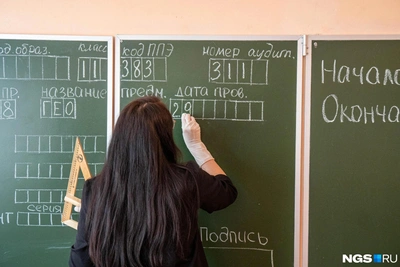 од образ. класс код ППЭ номер аудит.
11 383 311
название предм. дата пров.
8 ГЕО 29
серия
Подпись
Начало
Оконча
NGS.RU